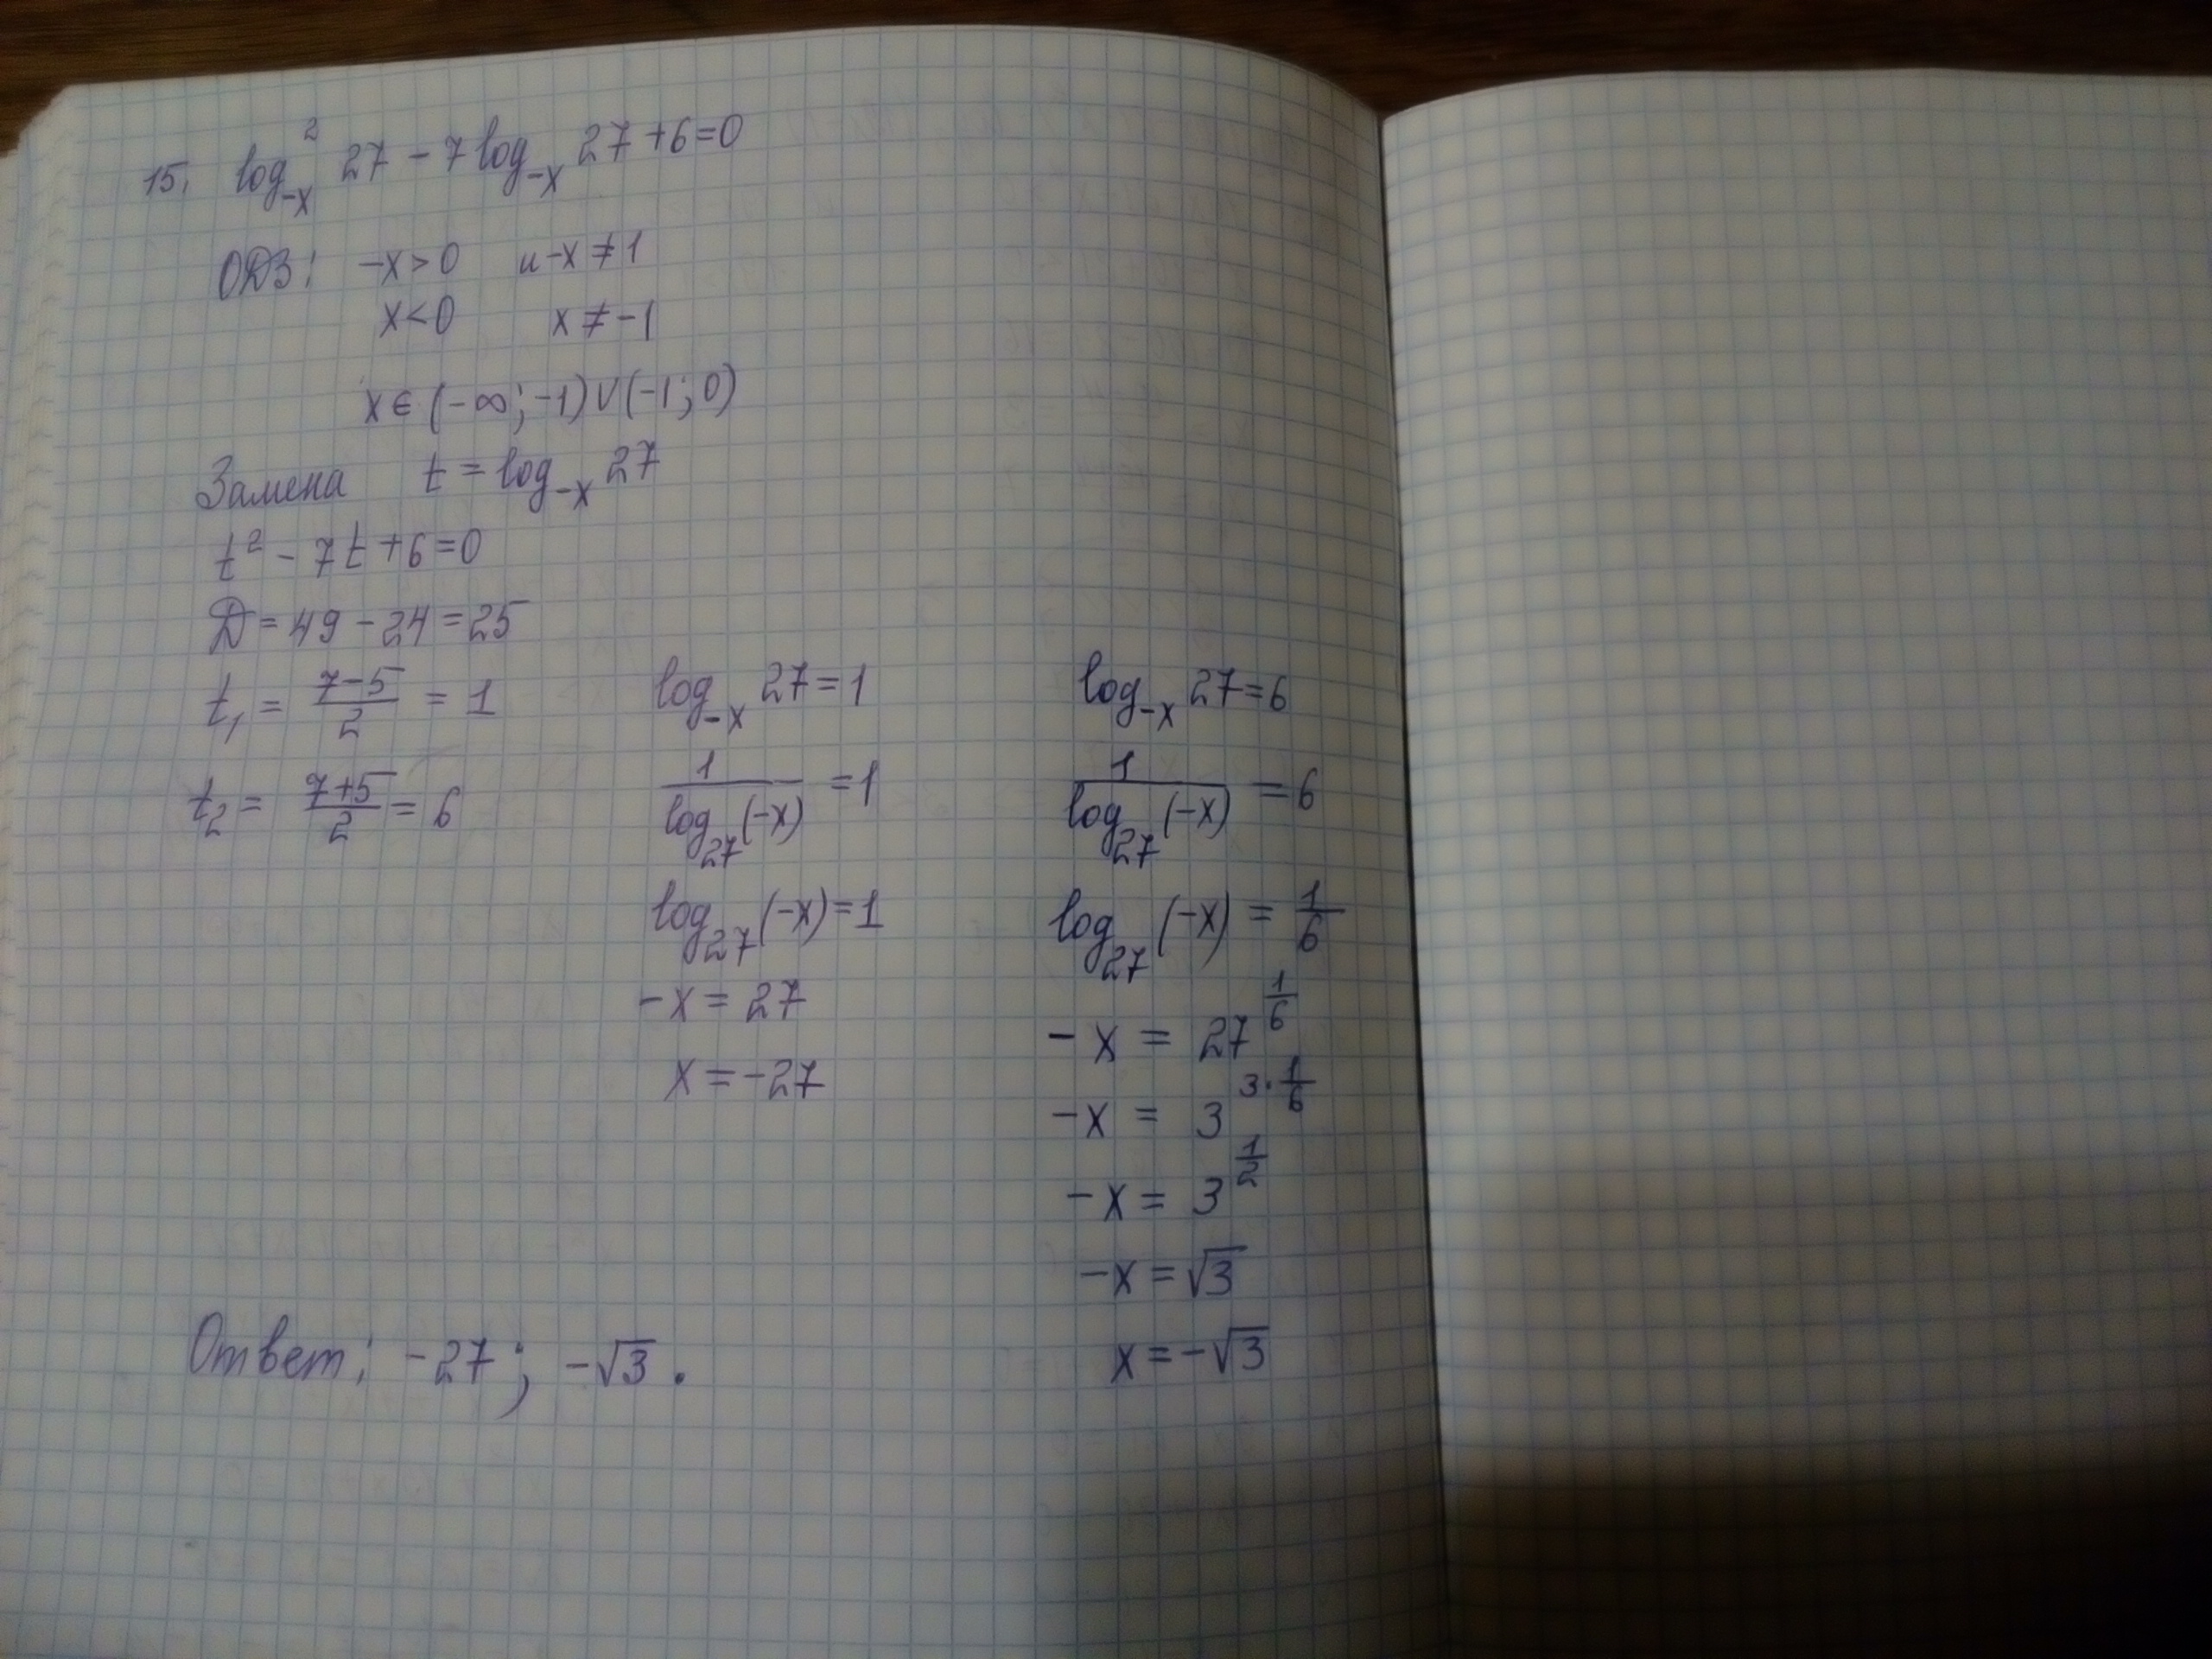 15. log²₋ₓ 27 - 7 log₋ₓ 27 + 6 = 0
ОДЗ: -x > 0 и -x ≠ 1
x < 0 x ≠ -1
x ∈ (-∞; -1) ∪ (-1; 0)
Замена t = log₋ₓ 27
t² - 7t + 6 = 0
Д = 49 - 24 = 25
t₁ = (7-5)/2 = 1
t₂ = (7+5)/2 = 6
log₋ₓ 27 = 1
1/log₂₇(-x) = 1
log₂₇(-x) = 1
-x = 27
x = -27
log₋ₓ 27 = 6
1/log₂₇(-x) = 6
log₂₇(-x) = 1/6
-x = 27^(1/6)
-x = 3^(3·1/6)
-x = 3^(1/2)
-x = √3
x = -√3
Ответ: -27; -√3.